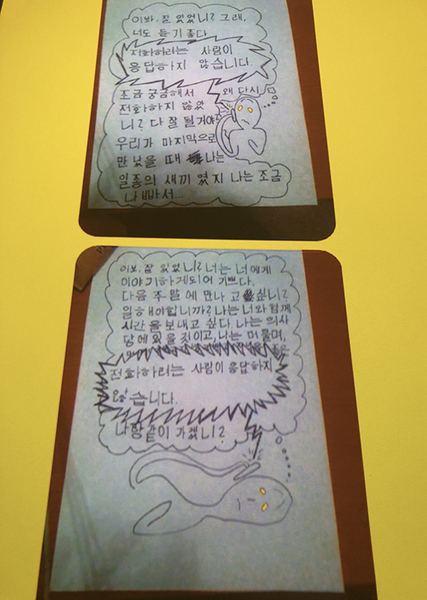 이봐, 잘 있었니? 그래,
너도 듣기 좋다
전화하려는 사람이
응답하지 않습니다.
조금 궁금해서 왜 다시
전화하지 않았
니? 다 잘 될거야
우리가 마지막으로
만났을 때 나는
일종의 새끼였지 나는 조금
나빠서...
이봐, 잘 있었니? 너는 너에게
이야기하게되어 기쁘다.
다음 주말에 만나고 싶니?
일해야합니까? 나는 너와 함께
시간을 보내고 싶다. 나는 의사
당에 있을 것이고, 나는 머물며,
전화하려는 사람이 응답하지
않습니다.
나랑 같이 가겠니?